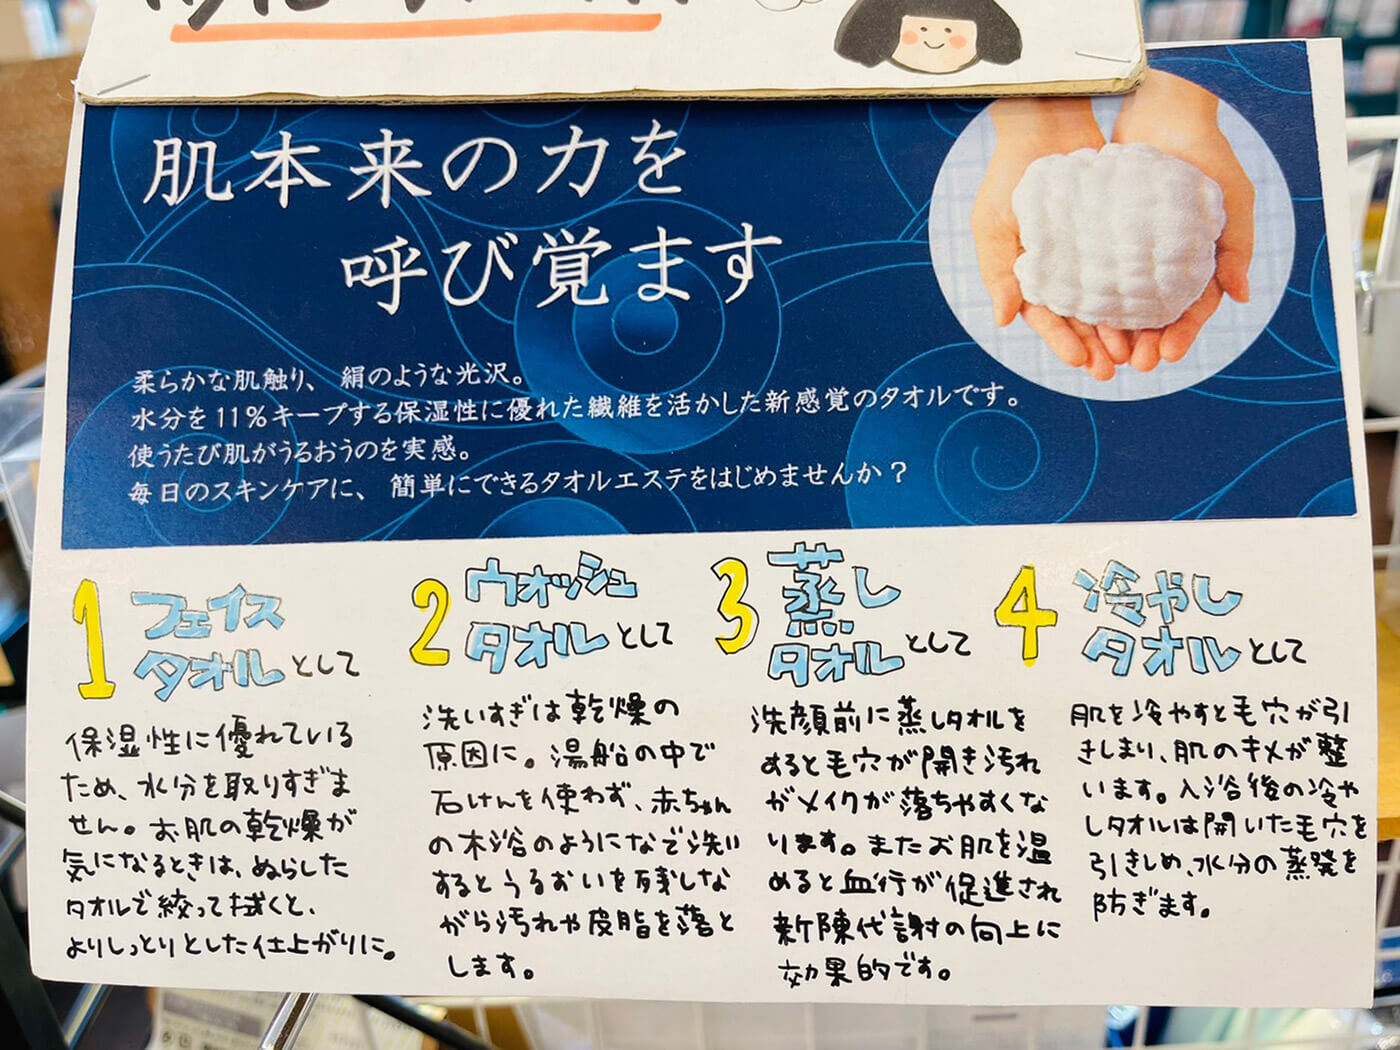 肌本来の力を
呼び覚ます
柔らかな肌触り、絹のような光沢。
水分を11%キープする保湿性に優れた繊維を活かした新感覚のタオルです。
使うたび肌がうるおうのを実感。
毎日のスキンケアに、簡単にできるタオルエステをはじめませんか？
1 フェイス
タオルとして
保湿性に優れている
ため、水分を取りすぎま
せん。お肌の乾燥が
気になるときは、ぬらした
タオルで絞って拭くと、
よりしっとりとした仕上がりに。
2 ウォッシュ
タオルとして
洗いすぎは乾燥の
原因に。湯船の中で
石けんを使わず、赤ちゃん
の木浴のようになで洗い
するとうるおいを残しな
がら汚れや皮脂を落と
します。
3 蒸し
タオルとして
洗顔前に蒸しタオルを
あると毛穴が開き汚れ
がメイクが落ちやすくな
ります。またお肌を温
めると血行が促進され
新陳代謝の向上に
効果的です。
4 冷やし
タオルとして
肌を冷やすと毛穴が引
きしまり、肌のキメが整
います。入浴後の冷や
しタオルは開いた毛穴を
引きしめ、水分の蒸発を
防ぎます。